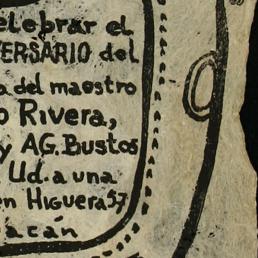 elebrar el
ERSARIO del
a del maestro
o Rivera,
y AG. Bustos
Ud. a una
en HIGUERA 57
acán